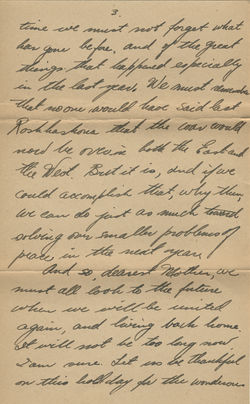 3.
time we must not forget what
has gone before, and of the great
things that happened especially
in the last year. We must remember
that no one would have said last
Rosh hashona that the war would
now be over in both the East and
the West. But it is, and if we
could accomplish that, why then
we can do just as much toward
solving our smaller problems of
peace in the next year.
And so, dearest Mother, we
must all look to the future
when we will be united
again, and living back home.
It will not be too long now
I am sure. Let us be thankful
on this holiday for the wonderous